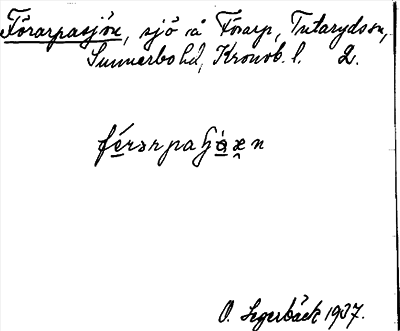 Förarpasjön, sjö i å Förarp, Tutaryds sn,
Sunnerbo hd, Kronob. l. 2.
O. Segerbäck 1937.